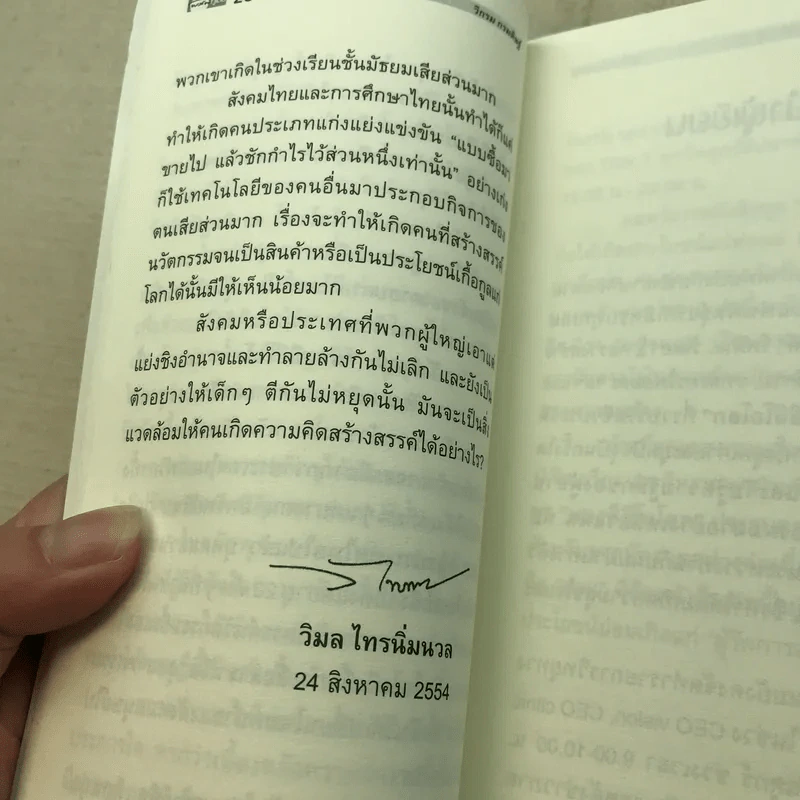 วิกรม กรมดิษฐ์
พวกเขาเกิดในช่วงเรียนชั้นมัธยมเสียส่วนมาก
สังคมไทยและการศึกษาไทยนั้นทำได้ก็แค่
ทำให้เกิดคนประเภทแก่งแย่งแข่งขัน “แบบซื้อมา
ขายไป แล้วชักกำไรไว้ส่วนหนึ่งเท่านั้น” อย่างเก่ง
ก็ใช้เทคโนโลยีของคนอื่นมาประกอบกิจการของ
ตนเสียส่วนมาก เรื่องจะทำให้เกิดคนที่สร้างสรรค์
นวัตกรรมจนเป็นสินค้าหรือเป็นประโยชน์เกื้อกูลแก่
โลกได้นั้นมีให้เห็นน้อยมาก
สังคมหรือประเทศที่พวกผู้ใหญ่เอาแต่
แย่งชิงอำนาจและทำลายล้างกันไม่เลิก และยังเป็น
ตัวอย่างให้เด็กๆ ตีกันไม่หยุดนั้น มันจะเป็นสิ่ง
แวดล้อมให้คนเกิดความคิดสร้างสรรค์ได้อย่างไร?
วิมล ไทรนิ่มนวล
24 สิงหาคม 2554